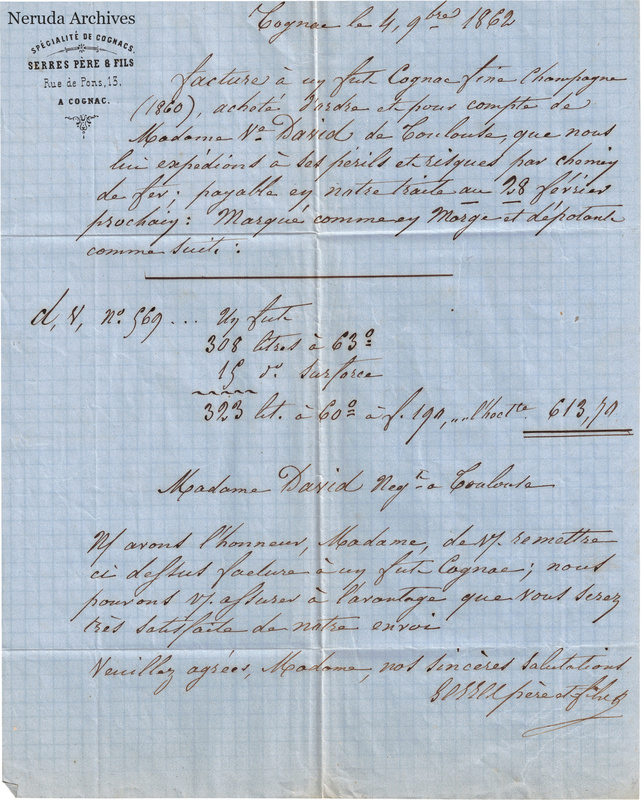 Neruda Archives
SPÉCIALITÉ DE COGNACS.
SERRES PÈRE & FILS
Rue de Pons, 13.
A COGNAC.
Cognac le 4, 9bre 1862
facture à un fut Cognac fine Champagne
(1860), acheté d'ordre et pour compte de
Madame Ve David de Toulouse, que nous
lui expédions à ses périls et risques par chemin
de fer; payable en notre traite au 28 février
prochain: Marqué comme en Marge et dépotant
comme suit:
d, V, no 569 ... Un fut
308 litres à 63º
15 do surforce
323 lit. à 60º à f. 190,,, l'hoctre 613,70
Madame David Negte à Toulouse
Ns avons l'honneur, Madame, de vs. remettre
ci dessus facture à un fut Cognac; nous
pouvons vs. assurer à l'avantage que vous serez
très satisfaite de notre envoi
Veuillez agréer, Madame, nos sincères salutations
Serres père et fils